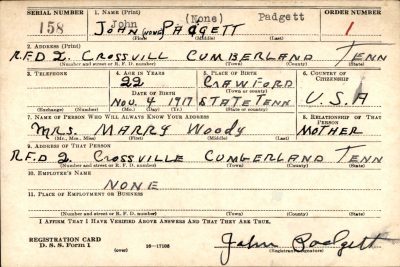 SERIAL NUMBER 1. NAME (Print) ORDER NUMBER
158 John (None) Padgett 1
JOHN (NONE) PADGETT
(First) (Middle) (Last)
2. ADDRESS (Print)
R.F.D 2. CROSSVILLE CUMBERLAND TENN
(Number and street or R. F. D. number) (Town) (County) (State)
3. TELEPHONE 4. AGE IN YEARS 5. PLACE OF BIRTH 6. COUNTRY OF CITIZENSHIP
22 CRAWFORD
DATE OF BIRTH (Town or county)
NOV. 4 1917 STATE TENN U.S.A
(Exchange) (Number) (Mo.) (Day) (Yr.) (State or country)
7. NAME OF PERSON WHO WILL ALWAYS KNOW YOUR ADDRESS 8. RELATIONSHIP OF THAT PERSON
MRS. MARRY WOODY MOTHER
(Mr., Mrs., Miss) (First) (Middle) (Last)
9. ADDRESS OF THAT PERSON
R.F.D 2 CROSSVILLE CUMBERLAND TENN
(Number and street or R. F. D. number) (Town) (County) (State)
10. EMPLOYER'S NAME
NONE
11. PLACE OF EMPLOYMENT OR BUSINESS
(Number and street or R. F. D. number) (Town) (County) (State)
I AFFIRM THAT I HAVE VERIFIED ABOVE ANSWERS AND THAT THEY ARE TRUE.
REGISTRATION CARD
D. S. S. Form 1 (over) 16—17105 John Padgett
(Registrant's signature)